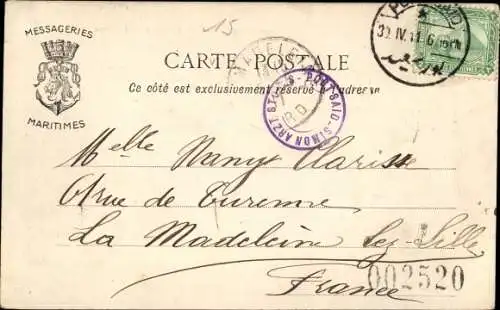 MESSAGERIES
MARITIMES
15
CARTE POSTALE
Ce côté est exclusivement réservé à l'adresse
PORT-SAID · SIMON ARZT
Melle Nancy Clarisse
rue de Turenne
La Madeleine Lez-Lille
France
002520